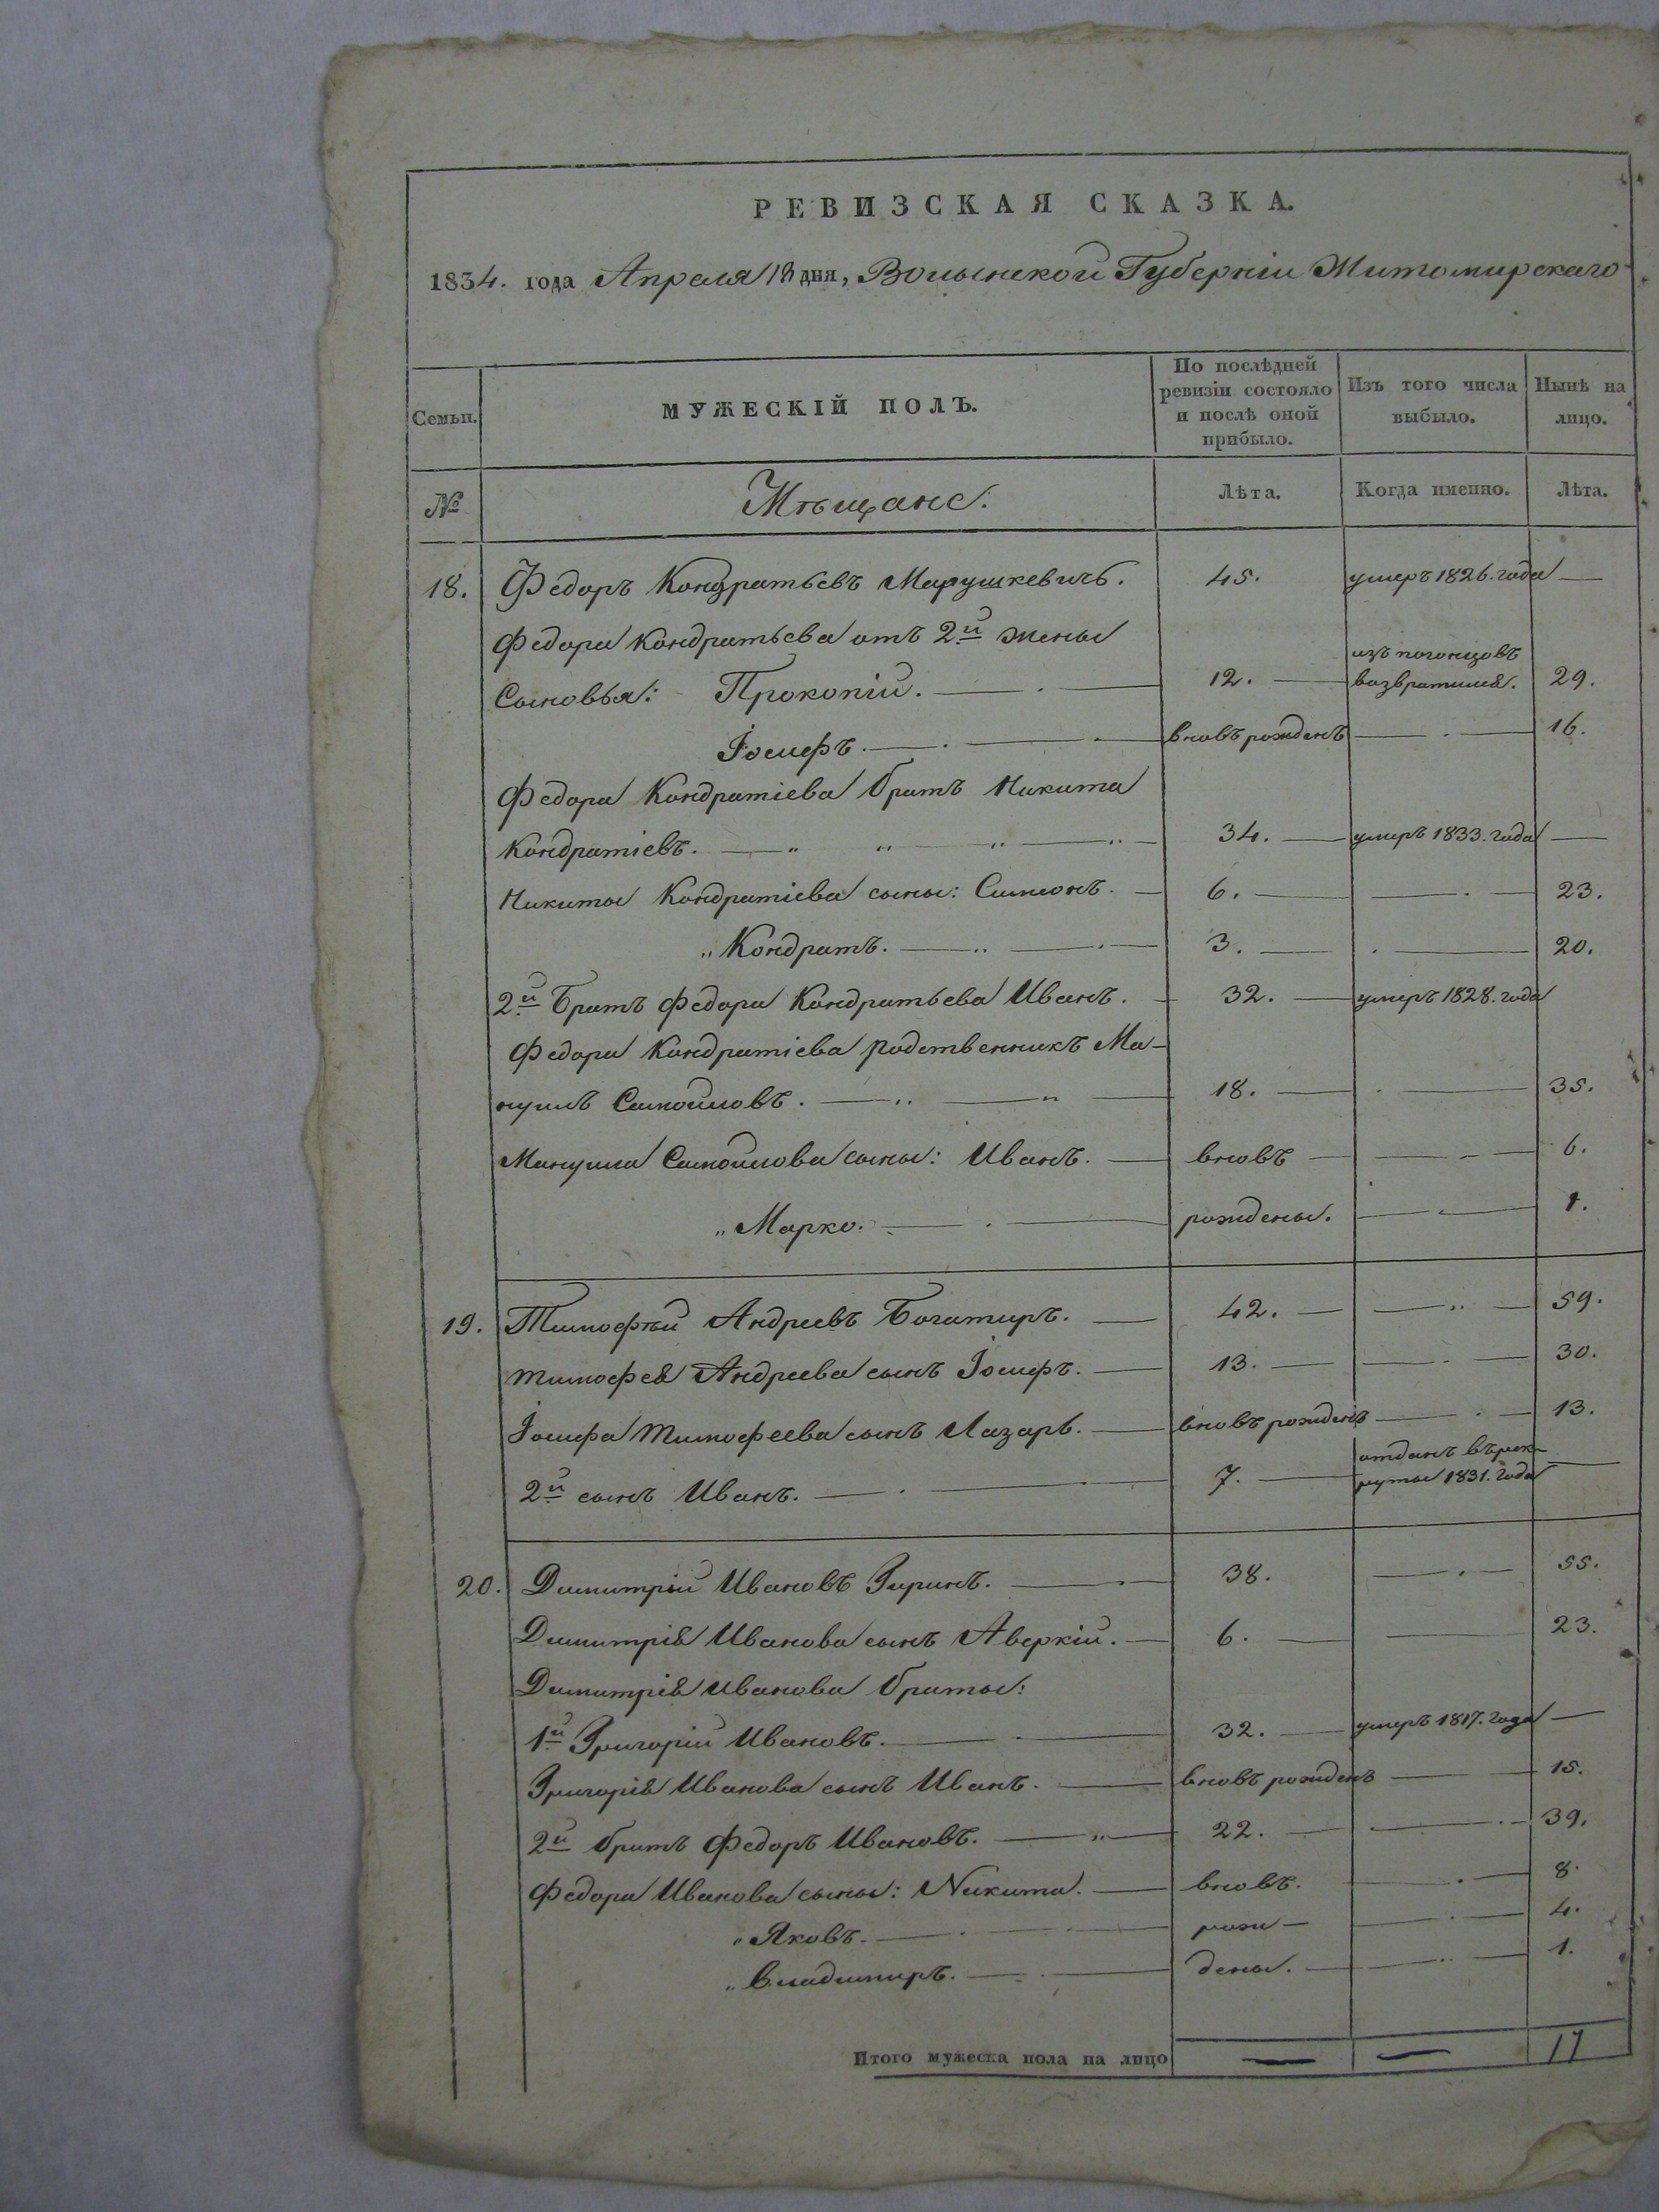 РЕВИЗСКАЯ СКАЗКА.
1834. года Апреля 18 дня, Волынской Губерніи Житомирскаго
Семьи. МУЖЕСКІЙ ПОЛЪ. По послѣдней ревизіи состояло и послѣ оной прибыло. Изъ того числа выбыло. Нынѣ на лицо.
№ Мѣщане. Лѣта. Когда именно. Лѣта.
18. Федоръ Кондратьевъ Марушкевичъ. 45. умеръ 1826. года —
Федора Кондратьева отъ 2й жены
Сыновья: Прокопій. 12. изъ погонцовъ возвратился. 29.
Іосифъ. вновъ рожденъ 16.
Федора Кондратіева братъ Никита
Кондратіевъ. 34. умеръ 1833. года —
Никиты Кондратіева сыны: Симонъ. 6. 23.
„ Кондратъ. 3. 20.
2й Братъ Федора Кондратьева Иванъ. 32. умеръ 1828. года
Федора Кондратіева родственникъ Ма-
нуилъ Самойловъ. 18. 35.
Мануила Самойлова сыны: Иванъ. вновъ 6.
„ Марко. рождены. 1.
19. Тимофѣй Андреевъ Богатиръ. 42. 59.
Тимофея Андреева сынъ Іосифъ. 13. 30.
Іосифа Тимофеева сынъ Лазарь. вновъ рожденъ 13.
2й сынъ Иванъ. 7. отданъ върек-руты 1831. года —
20. Димитрій Ивановъ Гиринъ. 38. 55.
Димитрія Иванова сынъ Аверкій. 6. 23.
Димитрія Иванова браты:
1й Григорій Ивановъ. 32. умеръ 1817. года —
Григорія Иванова сынъ Иванъ. вновъ рожденъ 15.
2й братъ Федоръ Ивановъ. 22. 39.
Федора Иванова сыны: Никита. вновъ. 8.
„ Яковъ. рож- 4.
„ Владимиръ. дены. 1.
Итого мужеска пола на лицо — — 17